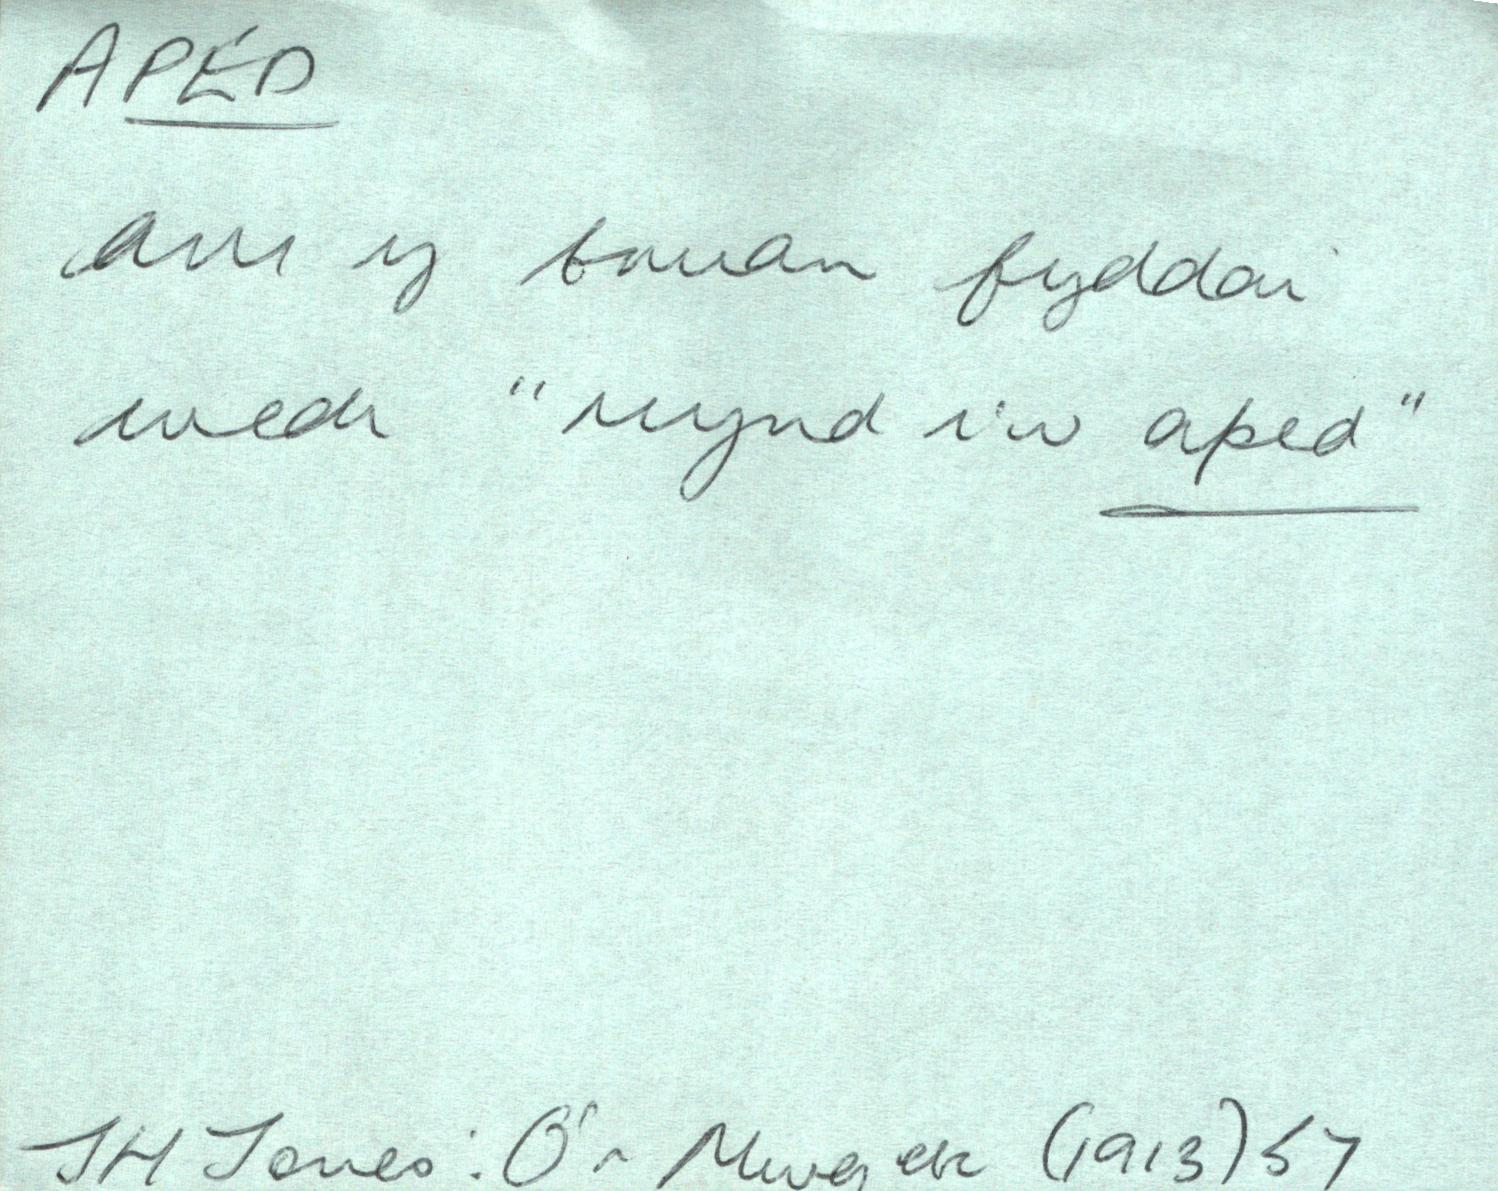 APÉD
am y truan fyddai
wedi "mynd i'w aped"
JH Jones: O'r Mwg (1913) 57